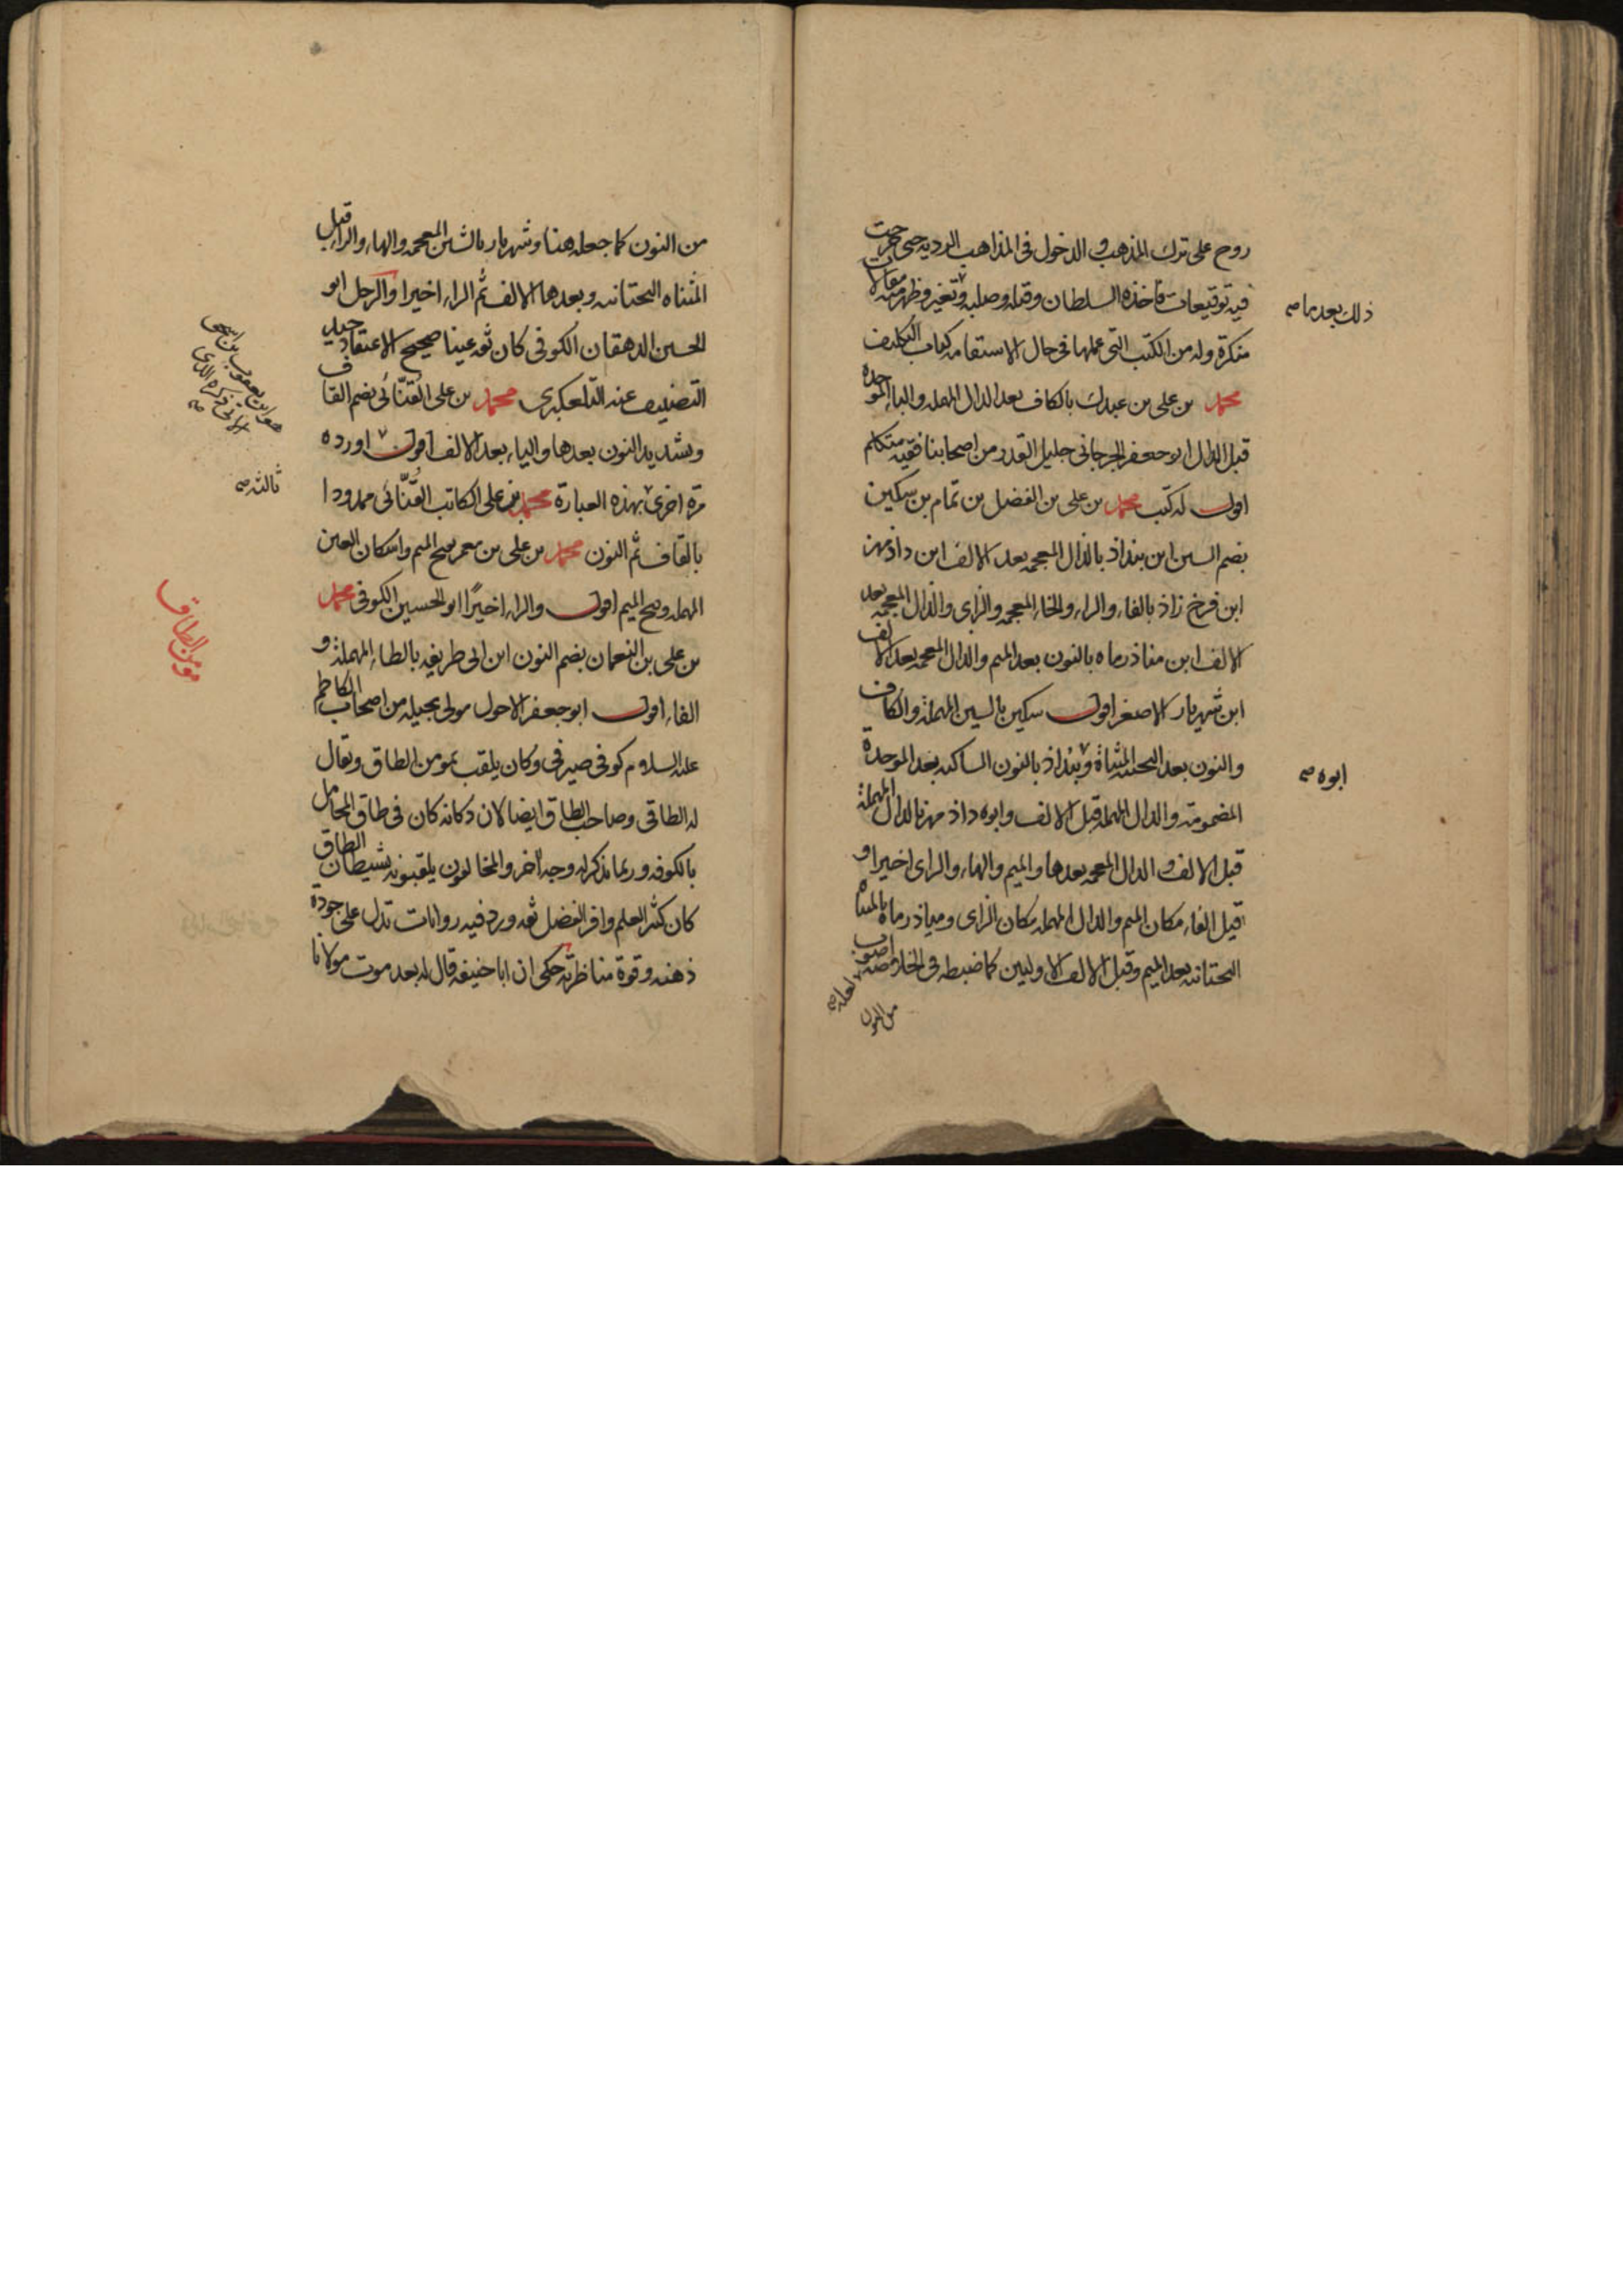 روح على ترك المذهب و الدخول فى المذاهب الرديه حتى خرجت
فيه توقيعات فاخذه السلطان وقتله وصلبه وتغير وظهر منه مقالات
منكرة وله من الكتب التى عملها فى حال الاستقامه كتاب التكليف
محمد بن على بن عبدك بالكاف بعد الدال المهمله والباء الموحده
قبل الدال ابو جعفر الجرجانى جليل القدر من اصحابنا فقيه متكلم
اقول له كتب محمد بن على بن الفضل بن تمام بن سكين
بضم السين ابن بنداذ بالذال المعجمه بعد الالف ابن داذمهز
ابن فرخ زاذ بالفاء والراء والخاء المعجمه والزاى والذال المعجمه بعد
الالف ابن مناذرماه بالنون بعد الميم والذال المعجمه بعد الالف
ابن شهريار الاصغر اقول سكين بالسين المهملة والكاف
والنون بعد التحتيه المثناة وبنداذ بالنون الساكنه بعد الموحدة
المضمومة والدال المهمله قبل الالف وابوه داذ مهز بالدال المهملة
قبل الالف و الذال المعجمه بعدها والميم والهاء والزاى اخيرا و
قيل الفاء مكان الميم والدال المهمله مكان الزاى ومياذرماه بالمثناه
التحتانيه بعد الميم وقبل الالف الاوليين كما ضبطه فى الخلاصه اصوب
من النون
لعله صح
ذلك بعدها صح
ابوه صح
من النون كما جعله هنا وشهريار بالشين المعجمه والهاء والراء قبل
المثناه التحتانيه وبعدها الالف ثم الراء اخيرا والرجل ابو
الحسين الدهقان الكوفى كان ثقه عينا صحيح الاعتقاد جيد
التصنيف عنه التلعكبرى محمد بن على القنّائى بضم القاف
وتشديد النون بعدها والياء بعد الالف اقول اورده
مرة اخرى بهذه العبارة محمد بن على الكاتب القُنّائى ممدودا
بالقاف ثم النون محمد بن على بن معمر بفتح الميم واسكان العين
المهمله وفتح الميم اقول والراء اخيرًا ابو الحسين الكوفى محمد
بن على بن النعمان بضم النون ابن ابى طريفه بالطاء المهملة و
الفاء اقول ابو جعفر الاحول مولى بجيله من اصحاب الكاظم
عليه السلام كوفى صيرفى وكان يلقب بمومن الطاق ويقال
له الطاقى وصاحب الطاق ايضا لان دكانه كان فى طاق المحامل
بالكوفه وربما يذكر له وجه آخر والمخالفون يلقبونه بشيطان الطاق
كان كثير العلم وافر الفضل ثقه ورد فيه روايات تدل على جودة
ذهنه وقوة مناظرته حكى ان ابا حنيفه قال له بعد موت مولانا
ثالثه صح
مومن الطاق